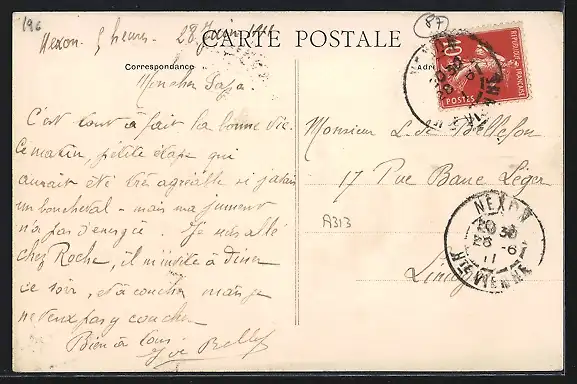 196
87
Nexon. 5 heures. 28 Juin 1911
CARTE POSTALE
Correspondance
RÉPUBLIQUE FRANÇAISE
10
POSTES
Mon cher Papa.
C'est tout à fait la bonne vie.
Ce matin, petite étape qui
aurait été très agréable si j'avais
un bon cheval - mais ma jument
n'a pas d'énergie. Je suis allé
chez Roche, il m'invite à dîner
ce soir, et à coucher mais je
ne veux pas y coucher
Bien à tous
Monsieur L. de Bellefon
17 Rue Banc Léger
A313
Limoges
NEXON
28 - 6
11
HTE VIENNE